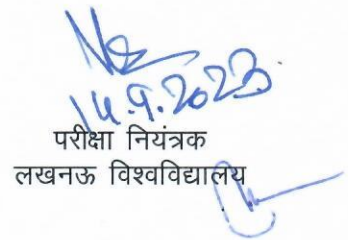 14.9.2023
परीक्षा नियंत्रक
लखनऊ विश्वविद्यालय